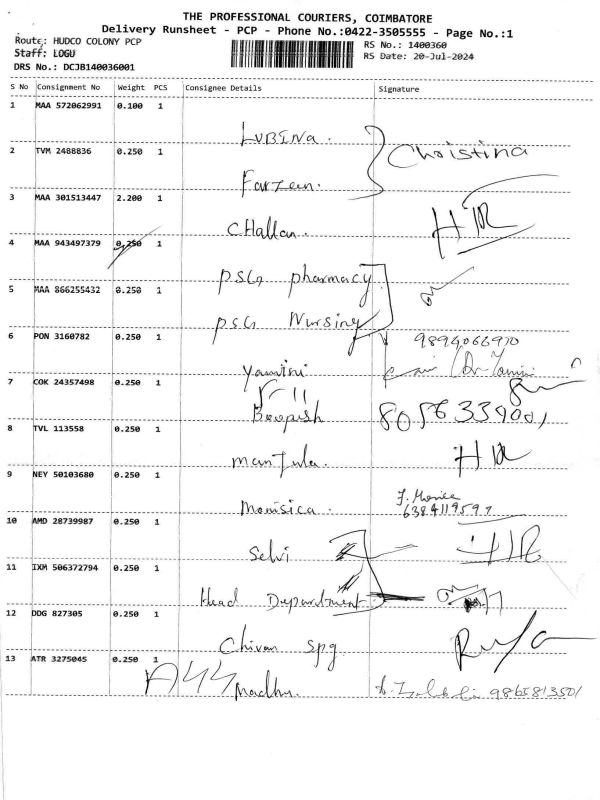 THE PROFESSIONAL COURIERS, COIMBATORE
Delivery Runsheet - PCP - Phone No.:0422-3505555 - Page No.:1
Route: HUDCO COLONY PCP
RS No.: 1400360
Staff: LOGU
RS Date: 20-Jul-2024
DRS No.: DCJB140036001
S No Consignment No Weight PCS Consignee Details Signature
1 MAA 572062991 0.100 1
Lubina.
Christina
2 TVM 2488836 0.250 1
Farzeen.
3 MAA 301513447 2.200 1
Challan.
4 MAA 943497379 0.250 1
PSG pharmacy
5 MAA 866255432 0.250 1
PSG Nursing
6 PON 3160782 0.250 1
9894066970
Yamini
7 COK 24357498 0.250 1
Boopesh
8056339001
8 TVL 113558 0.250 1
Manjula.
9 NEY 50103680 0.250 1
Monisica.
6384119597
10 AMD 28739987 0.250 1
Selvi
11 IXM 506372794 0.250 1
Head Department
12 DDG 827305 0.250 1
Chivan spg
13 ATR 3275045 0.250 1
Madhu.
9865813501